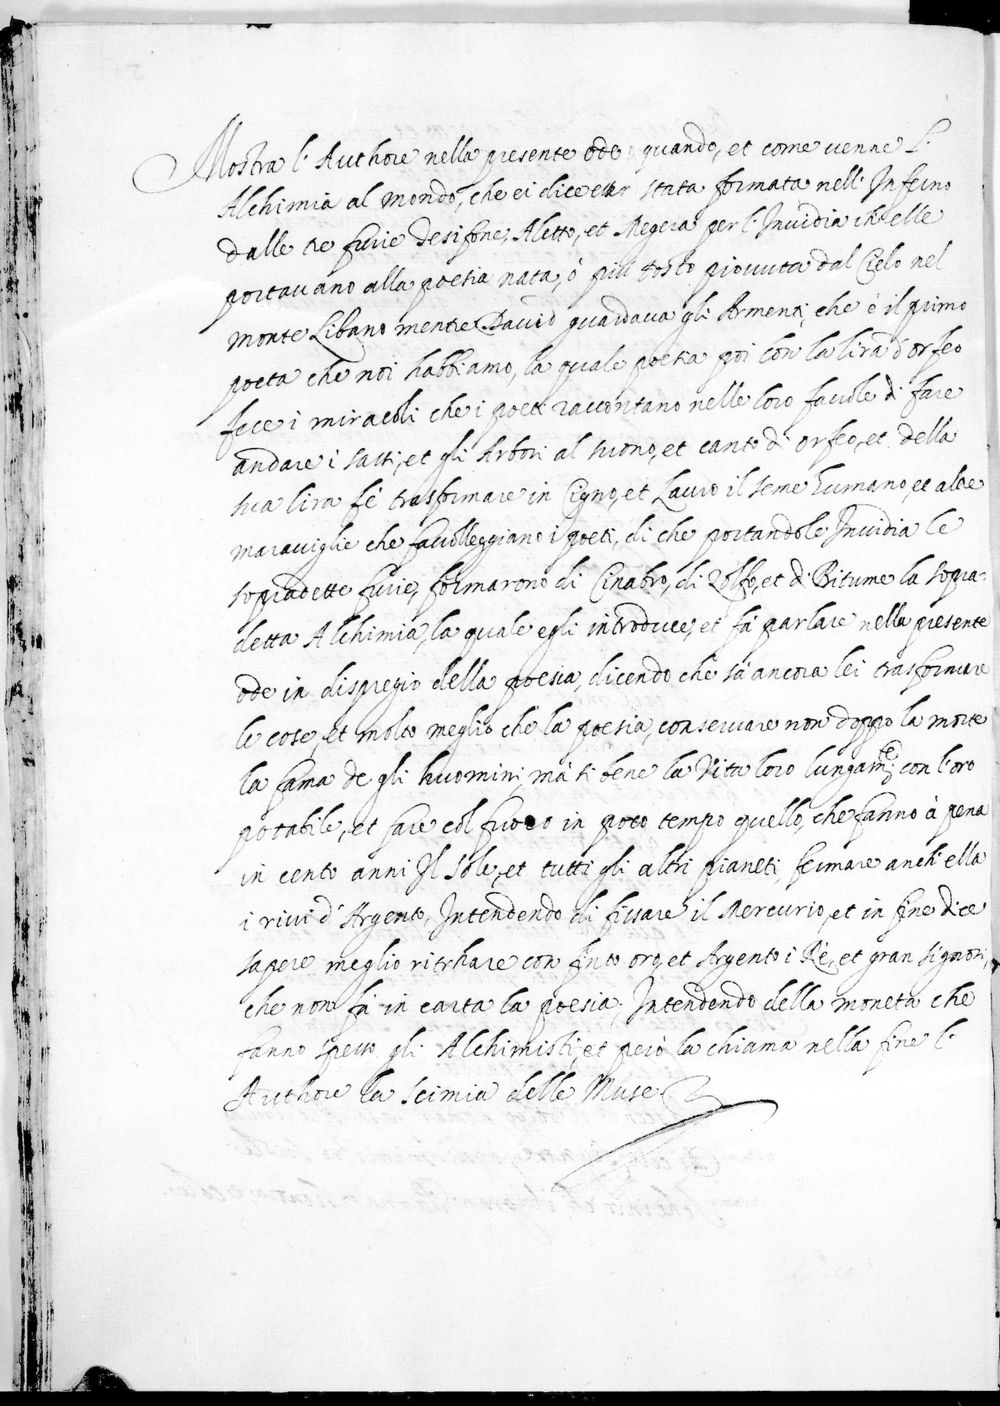 Mostra l'Authore nella presente ode quando, et come venne l'
Alchimia al mondo, che ei dice esser stata formata nell'Inferno
dalle tre furie Desifone, Aletto, et Megera per l'Invidia ch'elle
portavano alla poesia nata, ò più tosto piovuta dal Cielo nel
monte Libano mentre David guardava gli Armenti, che è il primo
poeta che noi habbiamo, la quale poesia poi con la lira d'orfeo
fece i miracoli che i poeti raccontano nelle loro favole di fare
andare i sassi, et gli Arbori al suono, et canto di orfeo, et della
sua lira fé trasformare in Cigno, et Lauro il seme humano, et altre
maraviglie che favolleggiano i poeti, di che portandole Invidia le
sopradette furie, formarono di Cinabro, di Zolfo, et di Bitume la sopra-
detta Alchimia, la quale egli introduce, et fà parlare nella presente
ode in dispregio della poesia, dicendo che sà ancora lei trasformare
le cose, et molto meglio che la poesia, conservare non doppo la morte
la fama de gli huomini, mà si bene la Vita loro lungam.te con l'oro
potabile, et fare col fuoco in poco tempo quello, che fanno à pena
in cento anni Il Sole, et tutti gli altri pianeti, fermare anch'ella
i rivi d'Argento, Intendendo di fissare il Mercurio, et in fine dice
sapere meglio ritrhare con finto oro, et Argento i Rè, et gran signori,
che non fà in carta la poesia; Intendendo della moneta che
fanno spesso gli Alchimisti, et però la chiama nella fine l'
Authore la scimia delle Muse.